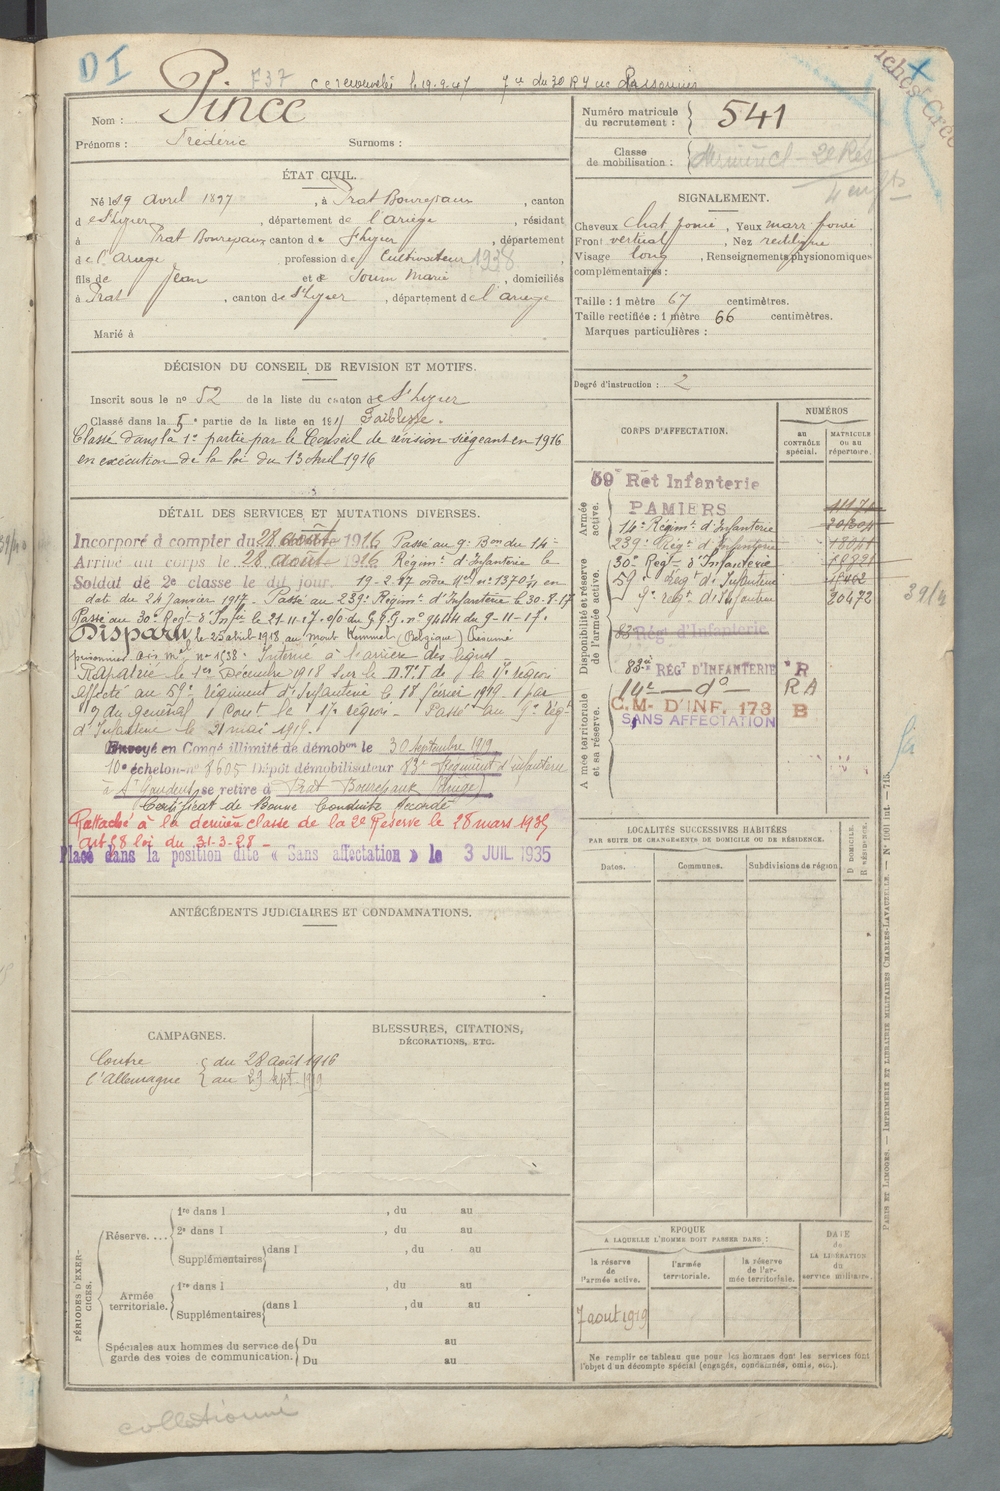 DI
F37
le 19.9.47
du 30 R
Nom : Pince
Prénoms : Frédéric Surnoms :
Numéro matricule
du recrutement : 541
Classe
de mobilisation :
ÉTAT CIVIL.
Né le 19 avril 1897, à Prat Bonrepaux, canton
d e St Lizier, département de l'ariège, résidant
à Prat Bonrepaux canton de St Lizier, département
de l'ariège profession de Cultivateur 1938
fils de Jean et de Soum Marie, domiciliés
à Prat, canton de St Lizier, département de l'ariège
Marié à
SIGNALEMENT.
Cheveux chat foncé, Yeux marr foncé
Front vertical, Nez rectiligne
Visage long, Renseignements physionomiques
complémentaires :
Taille : 1 mètre 67 centimètres.
Taille rectifiée : 1 mètre 66 centimètres.
Marques particulières :
Degré d'instruction : 2
DÉCISION DU CONSEIL DE REVISION ET MOTIFS.
Inscrit sous le no 52 de la liste du canton de St Lizier
Classé dans la 5e partie de la liste en 191 Faiblesse.
Classé dans la 1e partie par le Conseil de révision siégeant en 1916
en exécution de la loi du 13 Avril 1916
DÉTAIL DES SERVICES ET MUTATIONS DIVERSES.
Incorporé à compter du 28 août 1916 Passé au 9e Bon du 14e
Arrivé au corps le 28 août 1916 Régimt d'Infanterie le
Soldat de 2e classe le dit jour. 19-2-17 ordre Mel no 1370 en
date du 24 Janvier 1917. Passé au 239e Régimt d'Infanterie le 30-8-17
Passé au 30e Régt d'Infie le 21-11-17 o/o du G.Q.G. no 9444 du 9-11-17.
Disparu le 25 avril 1918 au mont Kemmel (Belgique) Présumé
prisonnier avis mel no 1538. Interné à l'arrière des lignes
Rapatrié le 1er Décembre 1918 Sur le D.T.I de la 17e région
affecté au 59e régiment d'Infanterie le 18 février 1919 par
du général Cont la 17e région - Passé au 9e Régt
d'Infanterie le 21 mai 1919.
Envoyé en Congé illimité de démobon le 30 Septembre 1919
10e échelon no 8605 Dépôt démobilisateur 83e Régiment d'infanterie
à St Gaudens se retire à Prat Bonrepaux (Ariège)
Certificat de Bonne Conduite Accordé
Rattaché à la dernière classe de la 2e Réserve le 28 mars 1935
art 58 loi du 31-3-28 -
Placé dans la position dite « Sans affectation » le 3 JUIL 1935
CORPS D'AFFECTATION.
NUMÉROS
AU CONTRÔLE spécial.
MATRICULE OU AU répertoire.
Armée active.
59e Rét Infanterie
PAMIERS
14e Régimt d'Infanterie
239e Régt d'Infanterie
30e Regt d'Infanterie
59e Régt d'Infanterie
9e régt d'Infanterie 20472
Disponibilité et réserve de l'armée active.
83e Régt d'Infanterie
83e RÉGT D'INFANTERIE R
14e — do — RA
Armée territoriale et sa réserve.
C.M. D'INF. 173 B
SANS AFFECTATION
39/4
ANTÉCÉDENTS JUDICIAIRES ET CONDAMNATIONS.
LOCALITÉS SUCCESSIVES HABITÉES
PAR SUITE DE CHANGEMENTS DE DOMICILE OU DE RÉSIDENCE.
Dates. Communes. Subdivisions de région
D DOMICILE.
R RÉSIDENCE.
CAMPAGNES.
Contre du 28 août 1916
l'Allemagne au 29 sept 1919
BLESSURES, CITATIONS,
DÉCORATIONS, ETC.
PÉRIODES D'EXERCICES.
Réserve.... 1re dans l , du au
2e dans l , du au
Supplémentaires dans l , du au
Armée territoriale. 1re dans l , du au
Supplémentaires dans l , du au
Spéciales aux hommes du service de
garde des voies de communication. Du au
Du au
EPOQUE
A LAQUELLE L'HOMME DOIT PASSER DANS :
la réserve de l'armée active.
l'armée territoriale.
la réserve de l'armée territoriale.
DATE de LA LIBÉRATION du service militaire.
7 aout 1919
Ne remplir ce tableau que pour les hommes dont les services font
l'objet d'un décompte spécial (engagés, condamnés, omis, etc.).
PARIS ET LIMOGES. — IMPRIMERIE ET LIBRAIRIE MILITAIRES CHARLES-LAVAUZELLE. — No 1001 int. — 715.
collationné